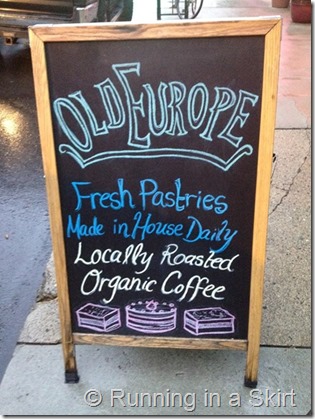 Old Europe
Fresh Pastries
Made in House Daily
Locally Roasted
Organic Coffee
© Running in a Skirt